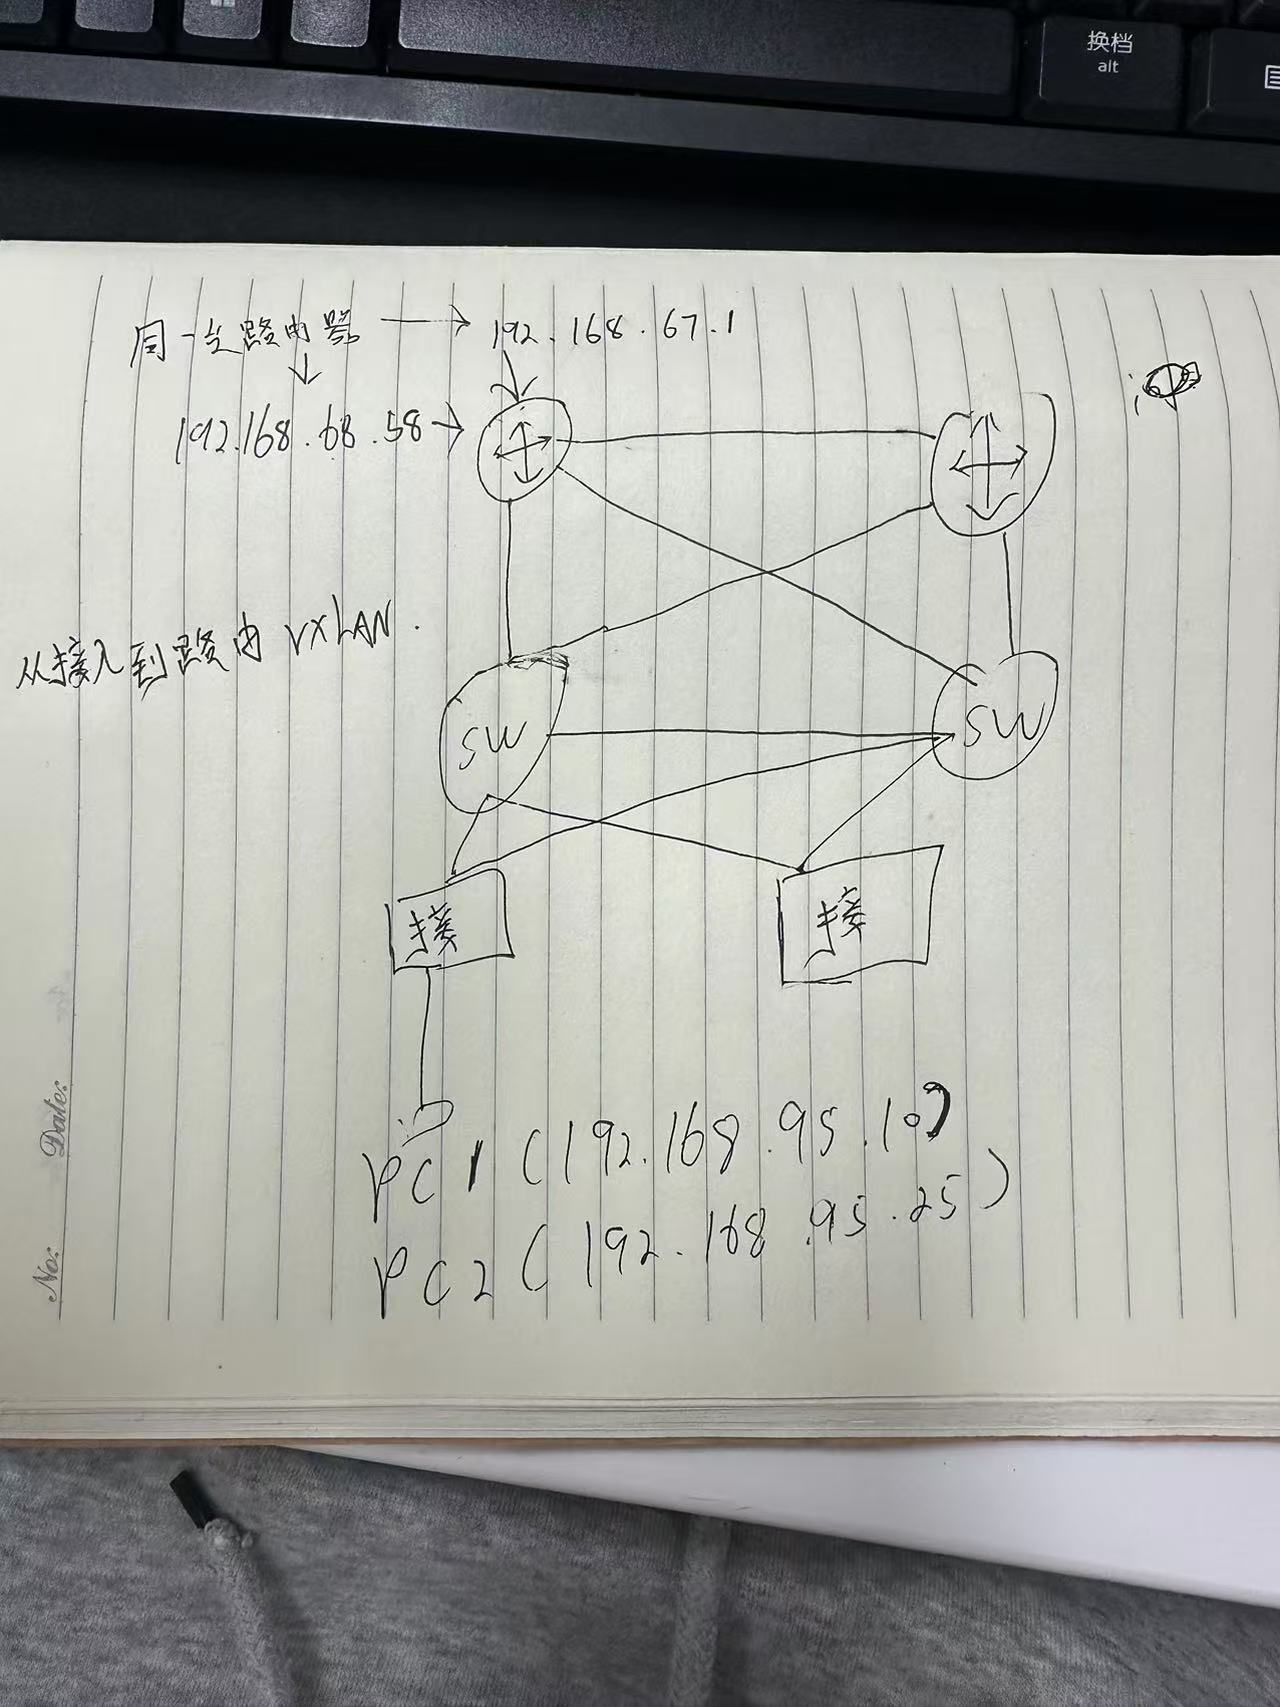 换档
alt
同一台路由器 → 192.168.67.1
192.168.68.58 →
从接入到路由 VXLAN.
SW
SW
接
接
PC1 (192.168.95.10)
PC2 (192.168.95.25)
Date:
No: